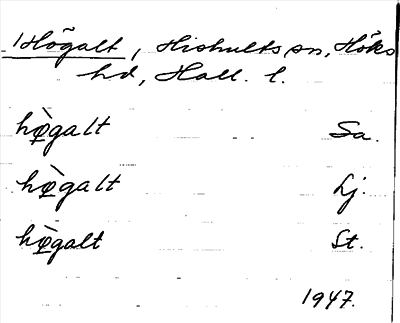 Högalt, Hishults sn, Höks
hd, Hall. l.
hø̀galt Sa.
hø̀galt Lj.
hø̀galt St.
1947.